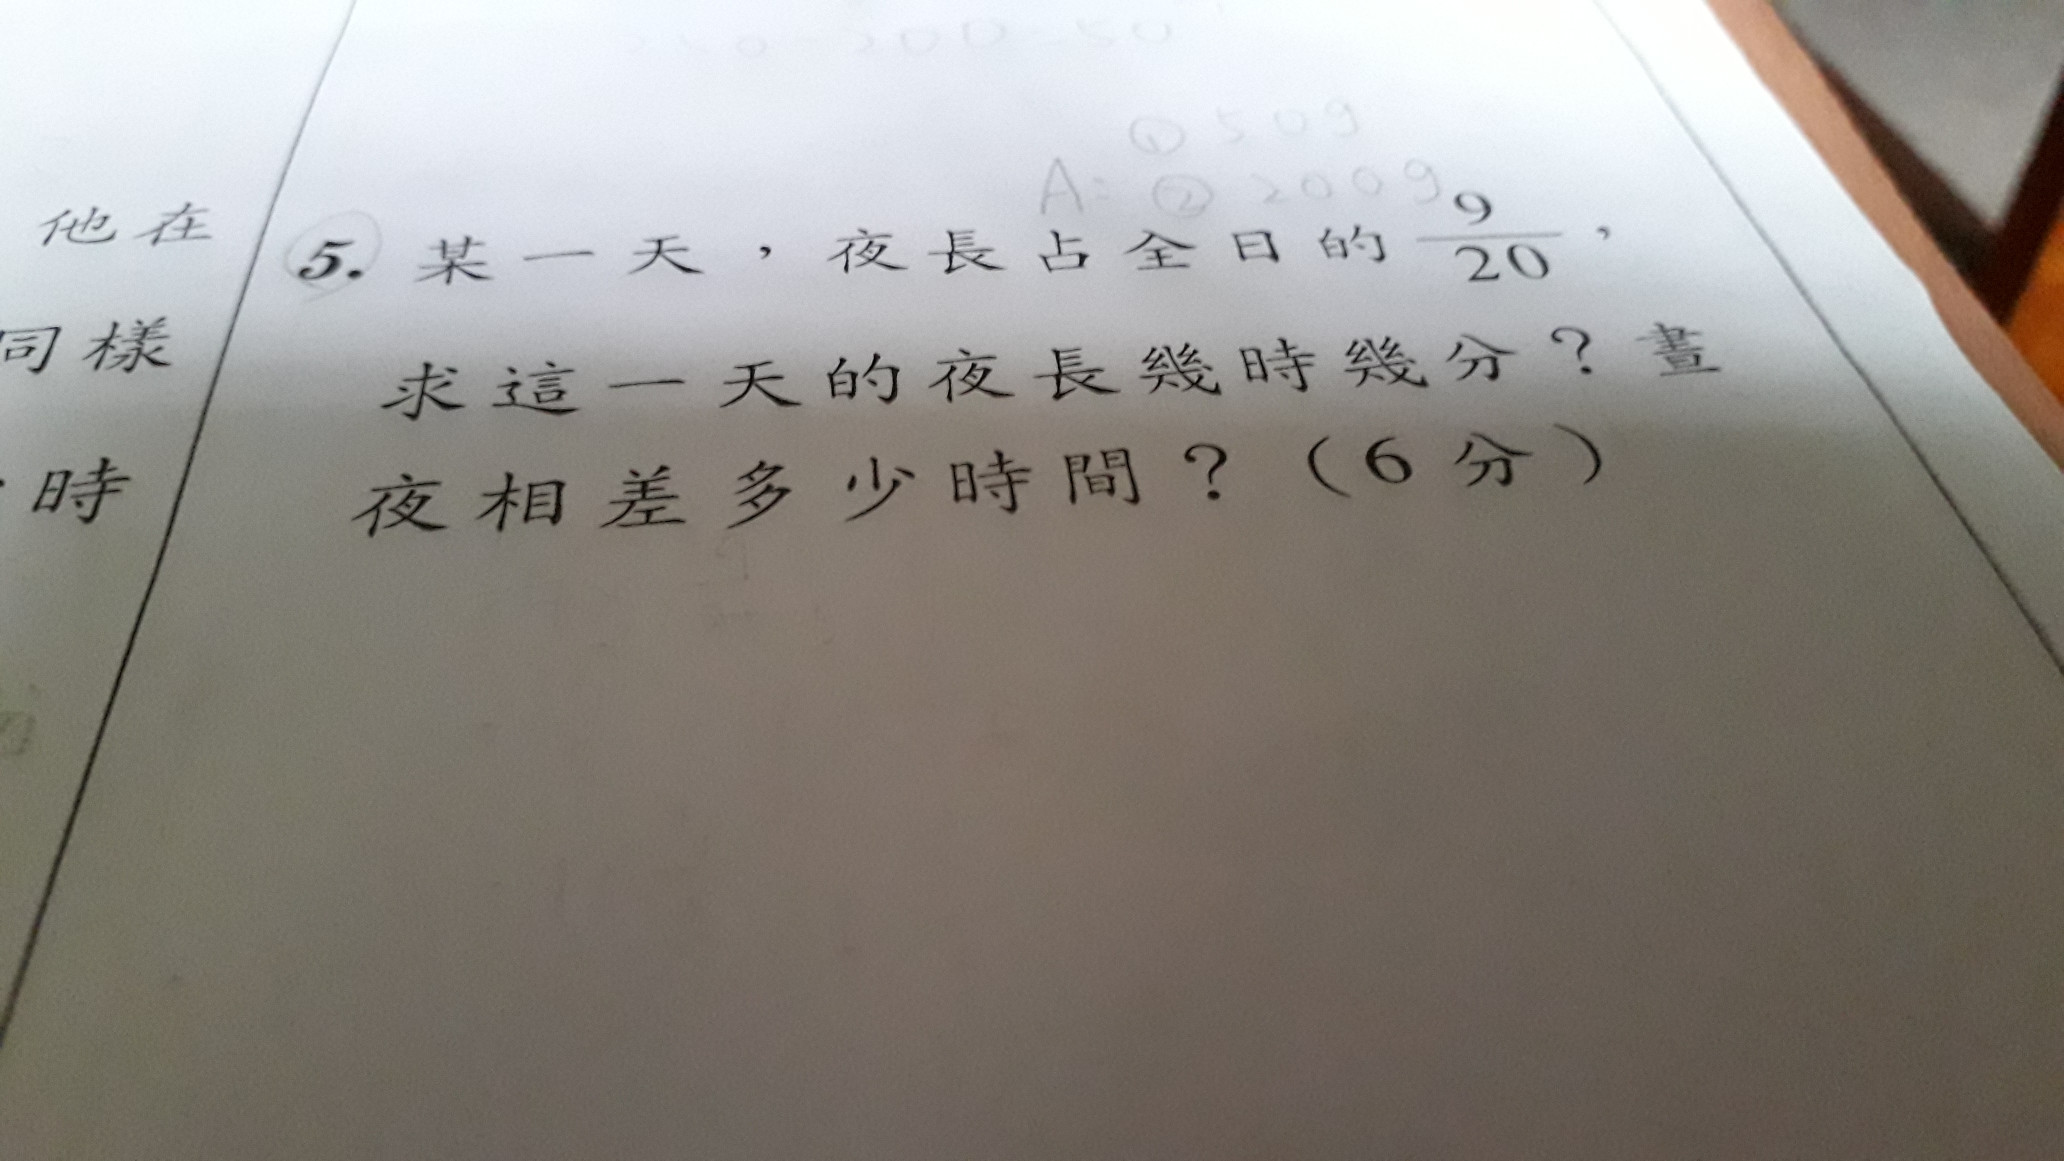 他在
同樣
時
① 50g
A: ② 200g
5. 某一天，夜長占全日的 9/20，
求這一天的夜長幾時幾分？晝
夜相差多少時間？（6分）